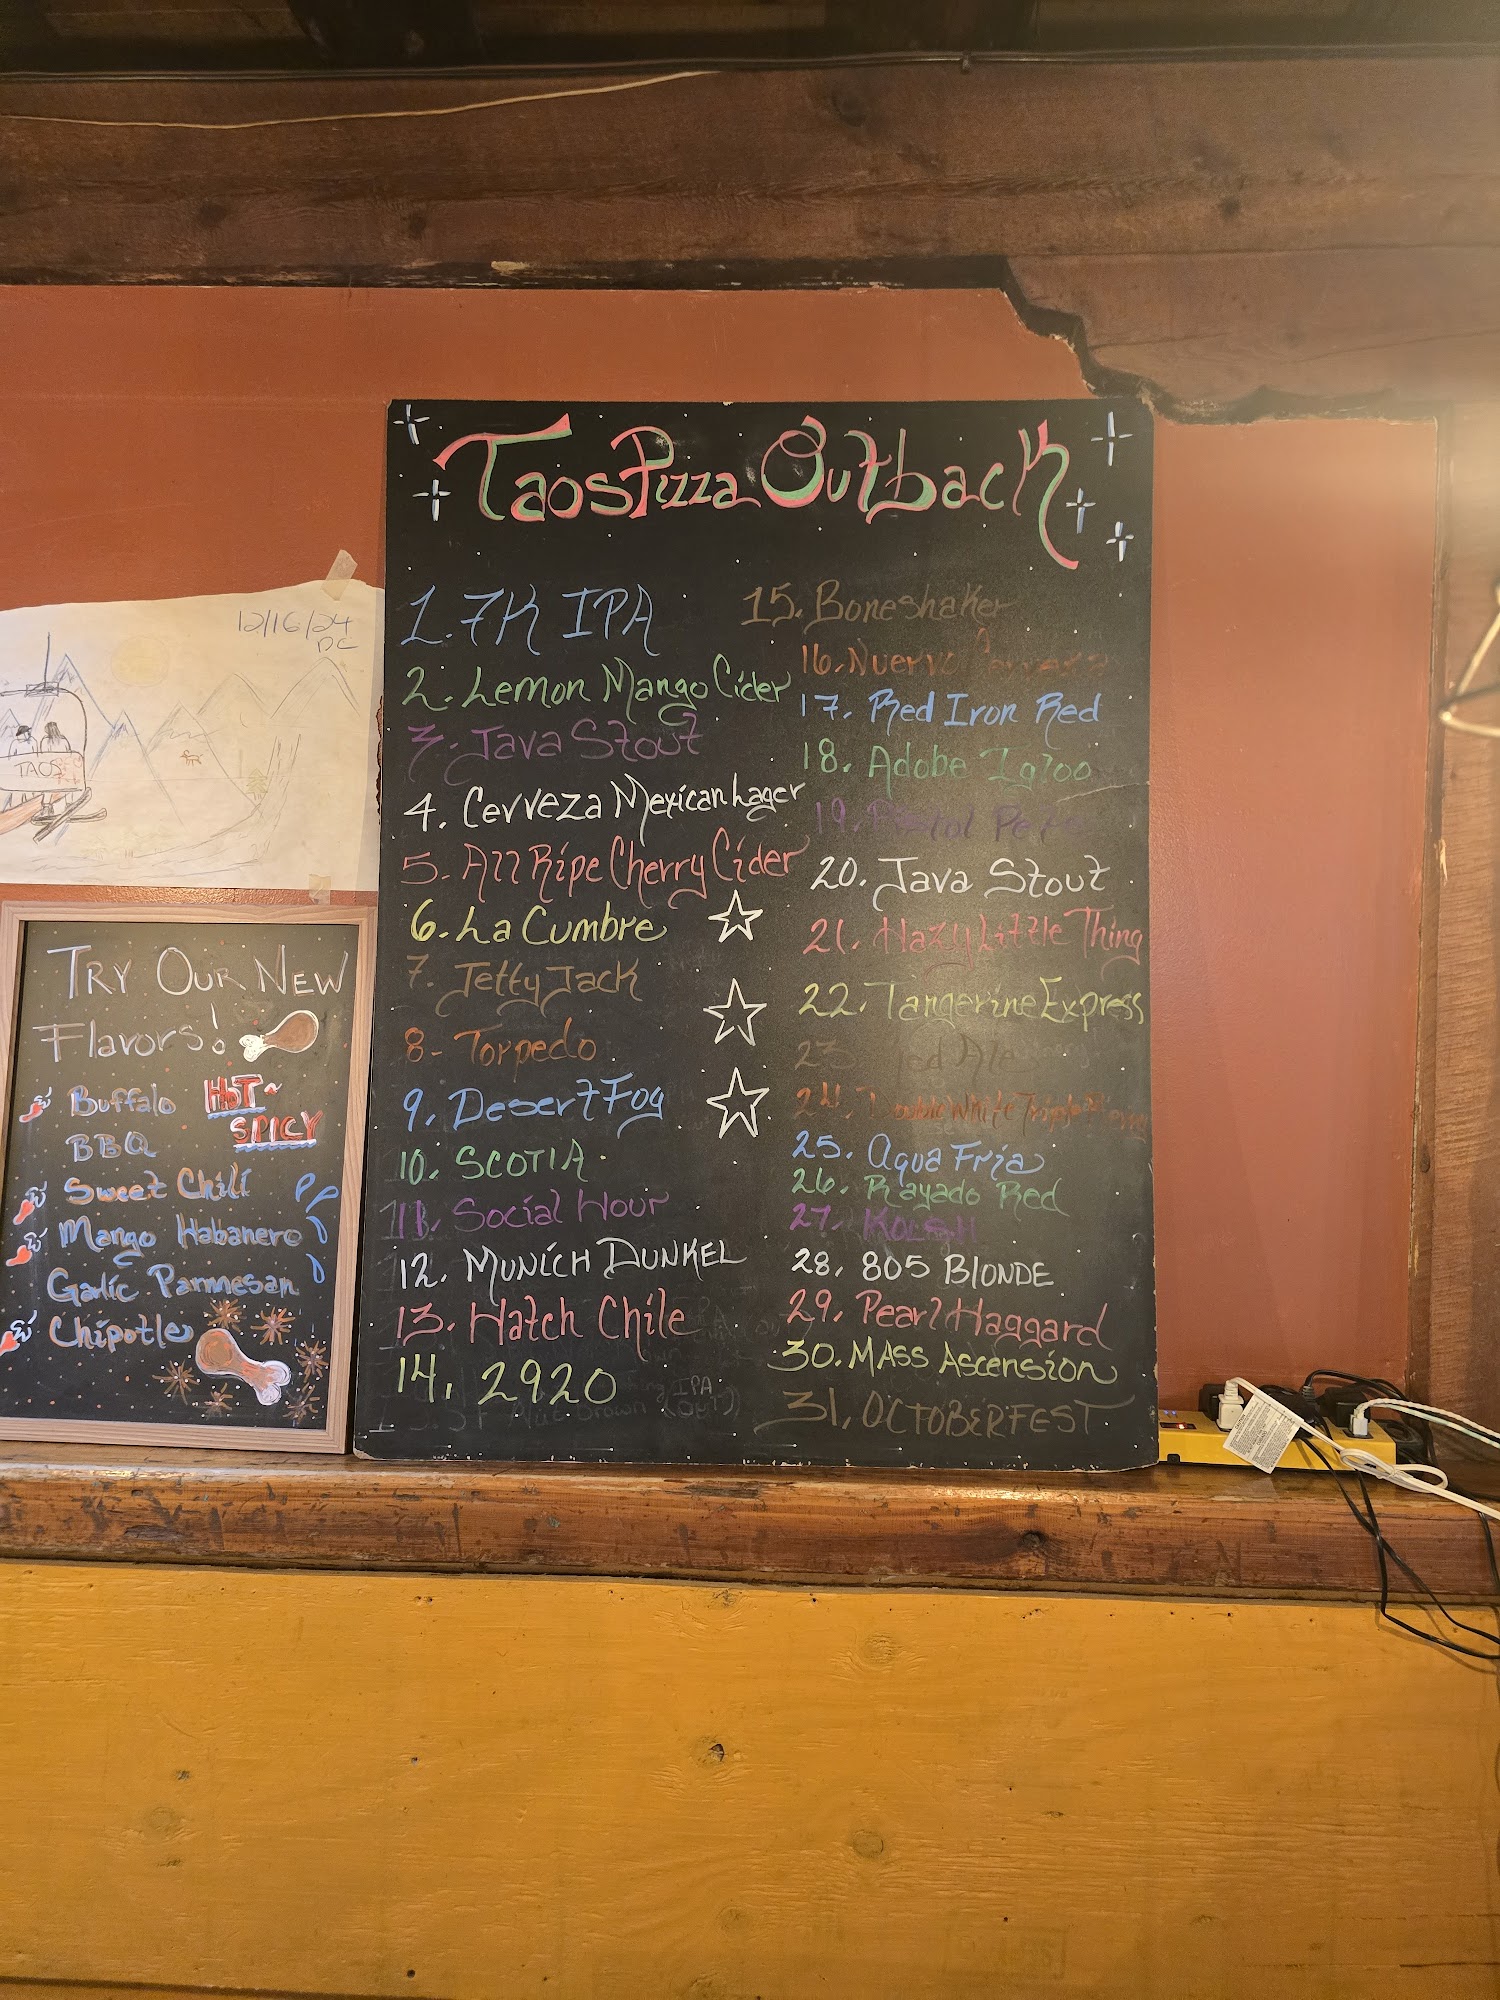 Taos Pizza Outback
1. 7K IPA
2. Lemon Mango Cider
3. Java Stout
4. Cerveza Mexican Lager
5. All Ripe Cherry Cider
6. La Cumbre
7. Jetty Jack
8- Torpedo
9. Desert Fog
10. SCOTIA
11. Social Hour
12. MUNICH DUNKEL
13. Hatch Chile
14. 2920
15. Boneshaker
16. Nuervo
17. Red Iron Red
18. Adobe Igloo
19.
20. Java Stout
21. Hazy Little Thing
22. Tangerine Express
23. Ale
24. Double White
25. Agua Fria
26. Rayado Red
27. KOLSH
28. 805 BLONDE
29. Pearl Haggard
30. MASS ASCENSION
31. OCTOBERFEST
12/16/24
DC
TAOS
TRY OUR NEW
Flavors!
Buffalo
HOT ~
SPICY
BBQ
Sweet Chili
Mango Habanero
Garlic Parmesan
Chipotle